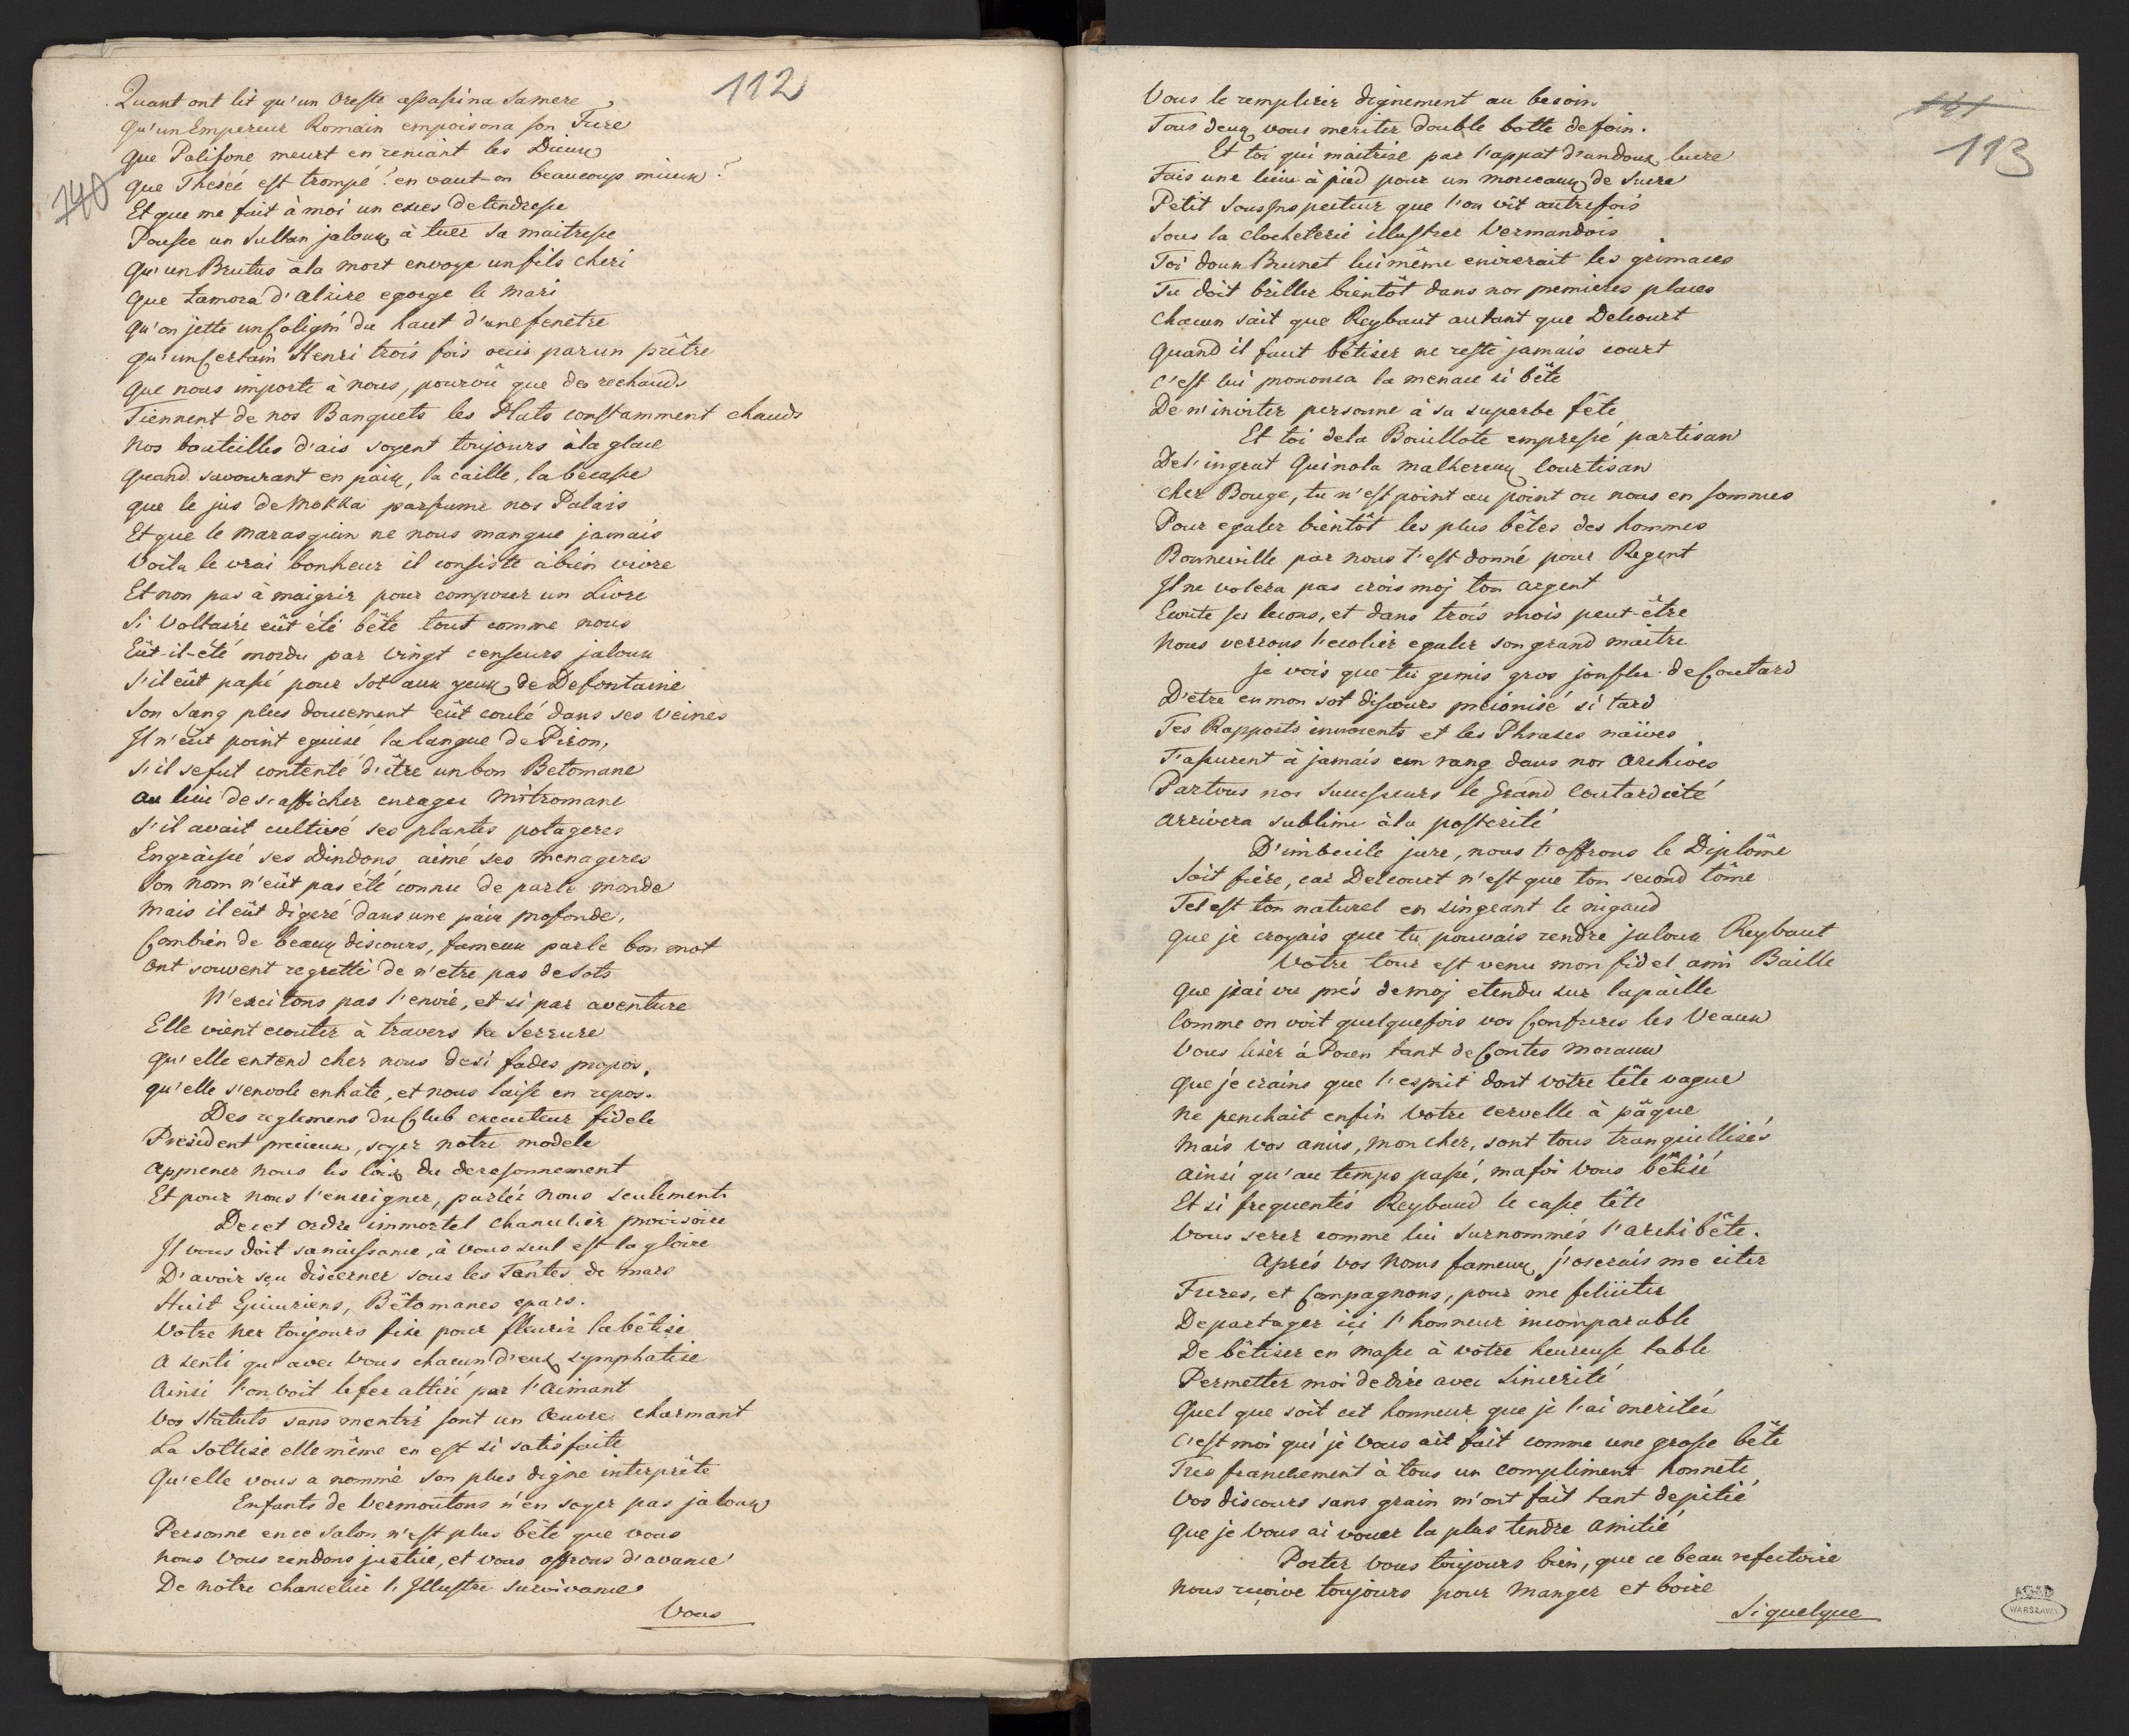 112
140
Quant ont lit qu'un Oreste assassina sa mere,
Qu'un Empereur Romain empoisona son Frere
Que Polifone meurt en reniant les Dieux
Que Thesée est trompé? en vaut-on beaucoup mieux?
Et que me fait à moi un exces de tendresse
Pousse un Sultan jaloux à tuer sa maitresse
Qu'un Brutus à la mort envoye un fils cheri
Que Zamora d'Alzire egorge le Mari
Qu'on jette un Coligni du haut d'une fenetre
Qu'un Certain Henri trois fois ocis par un prêtre
Que nous importe à nous, pourvû que des rechauds
Tiennent de nos Banquets les Plats constamment chauds
Nos bouteilles d'ais soyent toujours à la glace
Quand savourant en paix, la caille, la becasse
que le jus de Mokka parfume nos Palais
Et que le Marasquin ne nous manque jamais
Voila le vrai bonheur il consiste à bien vivre
Et non pas à maigrir pour composer un Livre
Si Voltaire eût été bête tout comme nous
Eût-il-été mordu par vingt censeurs jaloux
S'il eût passé pour sot aux yeux de Defontaine
Son Sang plus doucement eût coulé dans ses veines
Il n'eût point eguisé la langue de Piron,
S'il se fut contenté d'être un bon Betomane
Au lieu de s'afficher enragee Mitromane
S'il avait cultivé ses plantes potageres
Engraissé ses Dindons aimé ses menageres
Son nom n'eût pas été connu de par le monde
Mais il eût digeré dans une paix profonde,
Combien de beaux discours, fameux par le bon mot
Ont souvent regretté de n'etre pas de sots
N'excitons pas l'envie, et si par aventure
Elle vient ecouter à travers la Serrure
Qu'elle entend cher nous de si fades propos,
qu'elle s'envole en hâte, et nous laisse en repos.
Des reglemens du Club executeur fidele
President precieux, soyer notre modele
Apprener nous les loix du deresonnement
Et pour nous l'enseigner, parlér nous seulement
De cet Ordre immortel Chancelier provisoire
Il vous doit sa naissance, à vous seul est la gloire
D'avoir sçu discerner sous les Tentes de Mars
Huit Epicuriens, Bêtomanes epars.
Votre ner toujours fixe pour fleurir la bêtise
A senti qu'avec Vous chacun d'eux symphatise
Ainsi l'on voit le fer attiré par l'Aimant
Vos Statuts sans mentir sont un Œuvre charmant
La Sottise elle même en est si satisfaite
Qu'elle vous a nommé son plus digne interprête
Enfants de Vermoutons n'en soyer pas jaloux
Personne en ce Salon n'est plus bête que vous
Nous Vous rendons justice, et vous offrons d'avance
De nôtre Chancelier l'Illustre Survivance
Vous
141
113
Vous le remplirir dignement au besoin.
Tous deux vous meriter double botte de foin.
Et toi qui maitrise par l'appat d'un doux lucre
Fais une lieue à pied pour un morceaux de Sucre
Petit Sous Inspecteur que l'on vît autrefois
Sous la clocheterie illustrer Vermandois
Toi doux Brunet lui même envierait les grimaces
Tu doit briller bientôt dans nos premieres places
Chacun sait que Reybaut autant que Delcourt
Quand il faut bêtiser ne reste jamais court
C'est lui prononca la menace si bête
De n'inviter personne à sa superbe fête
Et toi de la Bouillote empressé partisan
De l'ingrat Quinola malhereux Courtisan
Cher Bouge, tu n'est point au point ou nous en sommes
Pour egaler bientôt les plus bêtes des hommes
Bonneville par nous t'est donné pour Regent
Il ne volera pas crois moj ton argent
Ecoute ses lecons, et dans trois mois peut-être
Nous verrons l'ecolier egaler son grand maitre
Je vois que tu gemis gros jonfler de Coutard
D'etre en mon sot discours preionisé si tard
Tes Rapports innocents et les Phrases naïves
T'assurent à jamais un rang dans nos Archives
Par tous nos successeurs le Grand Coutard cité
Arrivera sublime à la posterité
D'imbecile jure, nous t'offrons le Diplôme
Soit fiere, car Delcourt n'est que ton second tôme
Tel est ton naturel en singeant le nigaud
Que je croyais que tu pouvais rendre jaloux Reybaut
Votre tour est venu mon fidel ami Baille
Que j'ai vu prés de moj etendu sur la paille
Comme on voit quelquefois vos Confreres les Veaux
Vous lisér à Posen tant de Contes moraux
Que je crains que l'esprit dont votre tête vague
Ne penchait enfin votre cervelle à pâque
Mais vos amis, mon cher, sont tous tranquillisés
Ainsi qu'au temps passé, ma foi vous bêtisé
Et si frequentés Reybaud le casse tête
Vous serer comme lui surnommés l'archi bête.
Aprés vos Noms fameux j'oserais me citer
Freres, et Compagnons, pour me feliciter
De partager ici l'honneur incomparable
De bêtiser en masse à votre heureuse table
Permetter moi de dire avec Sincerité
Quel que soit cet honneur que je l'ai meritée
C'est moi qui je Vous ait fait comme une grosse bête
Tres franchement à tous un compliment honnete
Vos discours sans grain m'ont fait tant de pitié
Que je vous ai vouer la plus tendre Amitié
Porter vous toujours bien, que ce beau refectoire
Nous reçoive toujours pour manger et boire
Si quelque
AGAD
WARSZAWA